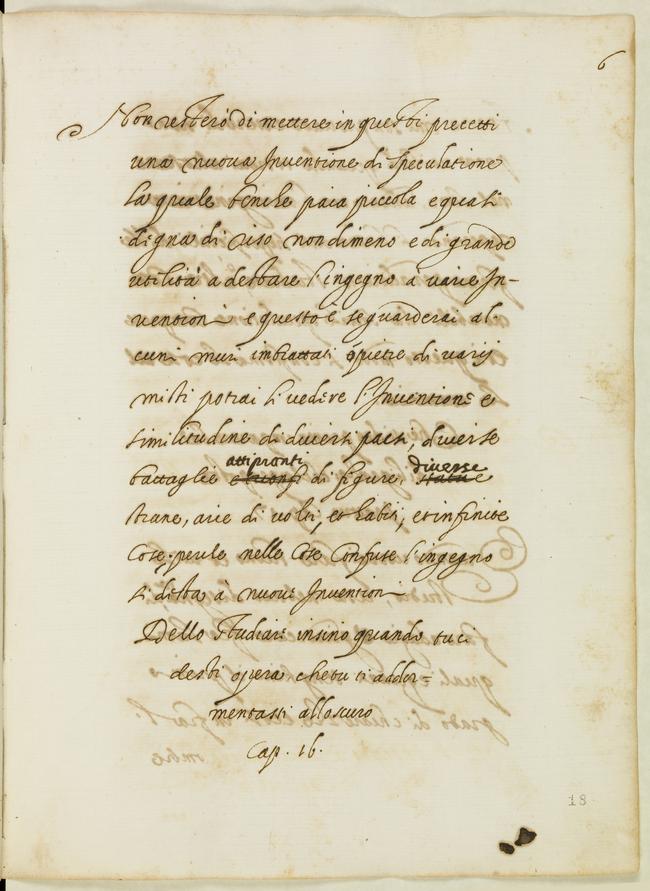 6
Non resterò di mettere in questi precetti
una nuova Inventione di speculatione
la quale benche paia piccola e quasi
digna di riso nondimeno e di grande
utilità a destare l'ingegno à varie In-
ventioni e questo è se guarderai al-
cuni muri imbrattati ò pietre di varij
misti potrai li vedere l'Inventione e
similitudine di diversi paesi, diverse
attipronti diverse
battaglie di figure,
strane, arie di volti, et habiti, et infinite
cose, perche nelle cose confuse l'ingegno
si desta à nuove Inventioni
Dello studiare insino quando tu ci
desti opera che tu ti addor=
mentasti all oscuro
Cap. 16.
18